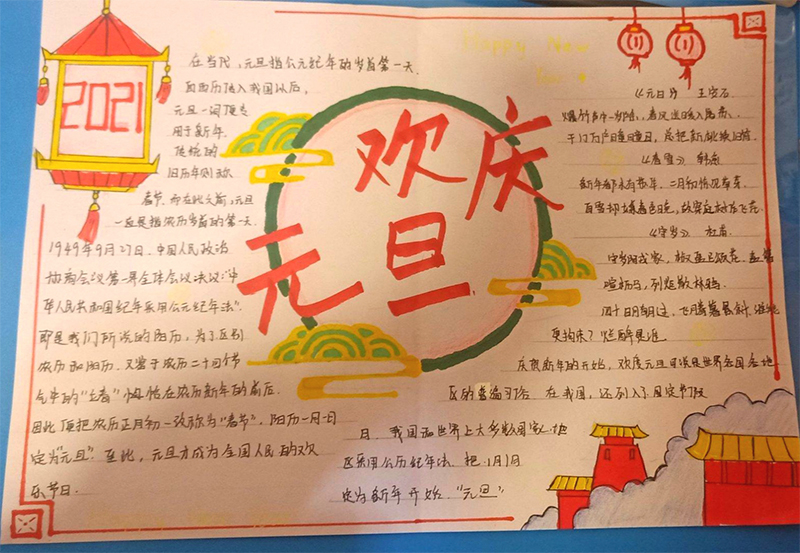 2021
Happy New
欢庆
元旦
在当代,元旦指公元纪年的岁首第一天.
自西历传入我国以后,
元旦一词便专
用于新年.
传统的
旧历年则称
春节.而在此之前,元旦
一直是指农历岁首的第一天.
1949年9月27日.中国人民政治
协商会议第一届全体会议决议:"中
华人民共和国纪年采用公元纪年法".
即是我们所说的阳历,为了区别
农历和阳历.又鉴于农历二十四个节
气中的"立春"恰恰在农历新年的前后.
因此便把农历正月初一改称为"春节",阳历一月一日
定为"元旦".至此,元旦才成为全国人民的欢
乐节日.
《元日》 王安石
爆竹声中一岁除,春风送暖入屠苏,
千门万户曈曈日,总把新桃换旧符.
《春雪》 韩愈
新年都未有芳华,二月初惊见草芽.
白雪却嫌春色晚,故穿庭树作飞花.
《守岁》 杜甫
守岁阿戎家,椒盘已颂花.盍簪
喧枥马,列炬散林鸦.
四十明朝过,飞腾暮景斜.谁能
更拘束?烂醉是
庆贺新年的开始,欢度元旦可说是世界各国各地
区的普遍习俗 在我国,还列入了固定节假
日.我国和世界上大多数国家.地
区采用公历纪年法.把1月1日
定为新年开始."元旦"